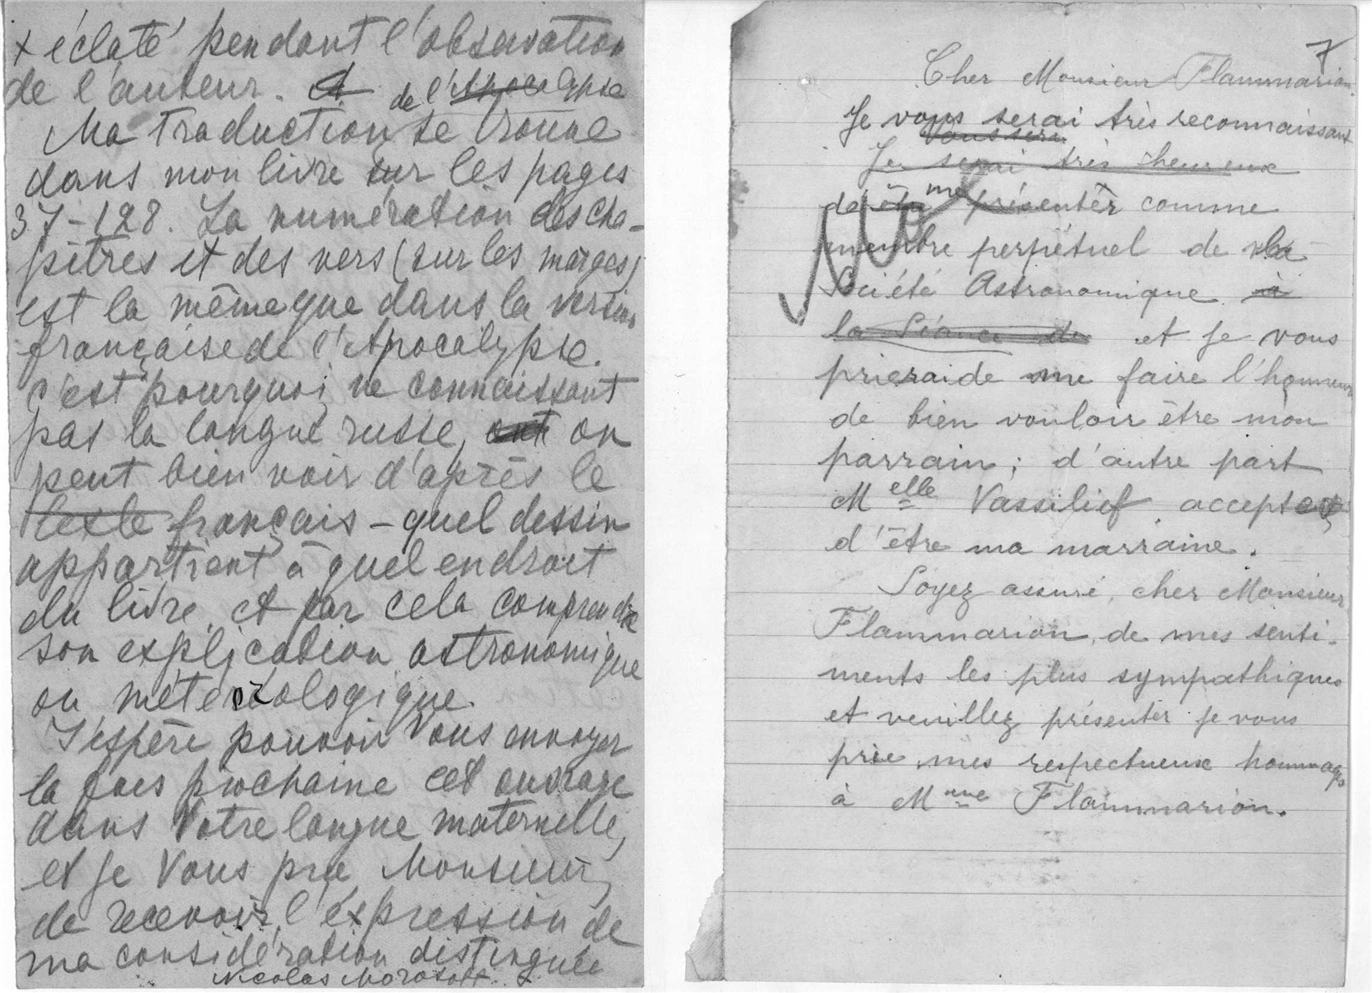 + éclaté pendant l'observation
de l'auteur. de l'Apocalypse
Ma traduction se trouve
dans mon livre sur les pages
37-128. La numération des cha-
pitres et des vers (sur les marges)
est la même que dans la version
française de l'Apocalypse.
C'est pourquoi ne connaissant
pas la langue russe, on
peut bien voir d'après le
texte français – quel dessin
appartient à quel endroit
du livre et par cela comprendre
son explication astronomique
ou météorologique.
J'espère pouvoir Vous envoyer
la fois prochaine cet ouvrage
dans Votre langue maternelle,
et je Vous prie Monsieur,
de recevoir l'expression de
ma considération distinguée
Nicolas Morosoff.
7
Cher Monsieur Flammarion
Je vous serai très reconnaissant
vous sera
Je serai très heureux
de être me présenter comme
membre perpétuel de la
Société Astronomique à
la Séance de et je vous
prierai de me faire l'honneur
de bien vouloir être mon
parrain ; d'autre part
Melle Vassilief accepte
d'être ma marraine.
Soyez assuré, cher Monsieur
Flammarion, de mes senti-
ments les plus sympathiques
et veuillez présenter je vous
prie mes respectueux hommages
à Mme Flammarion.